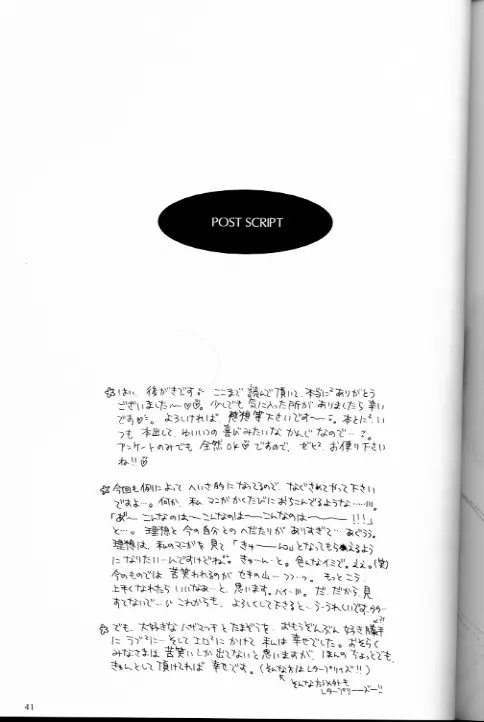 POST SCRIPT
はい、後がきです ここまで読んで頂いて、本当にありがとう
ございました〜 少しでも気に入った所がありましたら幸い
です よろしければ、感想等下さいです〜
つも 本出して、 喜びみたいな かんじ なので…
アンケートのみでも 全然OK ですので、ぜひ お便り下さい
ね!!
今回も例によって へいさ的になってるので、なぐさめてやって下さい
ですよ…。何か、私 マンガかくたびにおちこんでるような……
「あ〜 こんなのは〜こんなのは〜〜こんなのは〜〜 !!!」
と…。理想と今の自分とのへだたりがありすぎて…あぐぅ。
理想は、私のマンガを見て「きゅーん」となってもらえるよう
になりたいーんですけどね。きゅーんーと。色んなイミで。ええ。(笑)
今のものでは 苦笑われるのがセキの山 もっとこう
上手くなれたらいいなぁーと、思います。ハイ 。だ、だから、見
すてないで… これからも、よろしくして下さると、うれしいです
でも、大好きな と を、おもうぞんぶん 好き勝手
に ラブに…そしてエロに かけて 私は 幸せでした。おそらく
みなさまは 苦笑いしか出てないと思いますが、ほんのちょっとでも、
きゅんとして頂ければ 幸せです。(そんな方はレタープリィズ!!)
そんな方以外も
レタープリーーズー!!
41